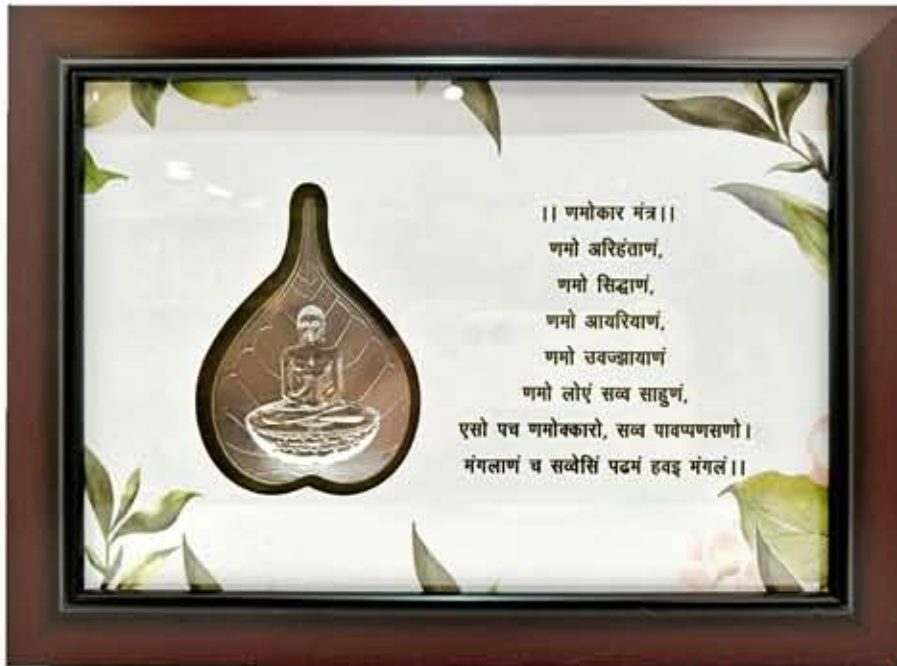 || णमोकार मंत्र||
णमो अरिहंताणं,
णमो सिद्धाणं,
णमो आयरियाणं,
णमो उवज्झायाणं
णमो लोएं सव्व साहुणं,
एसो पच णमोक्कारो, सव्व पावप्पणसणो|
मंगलाणं च सव्वेसिं पढमं हवइ मंगलं||